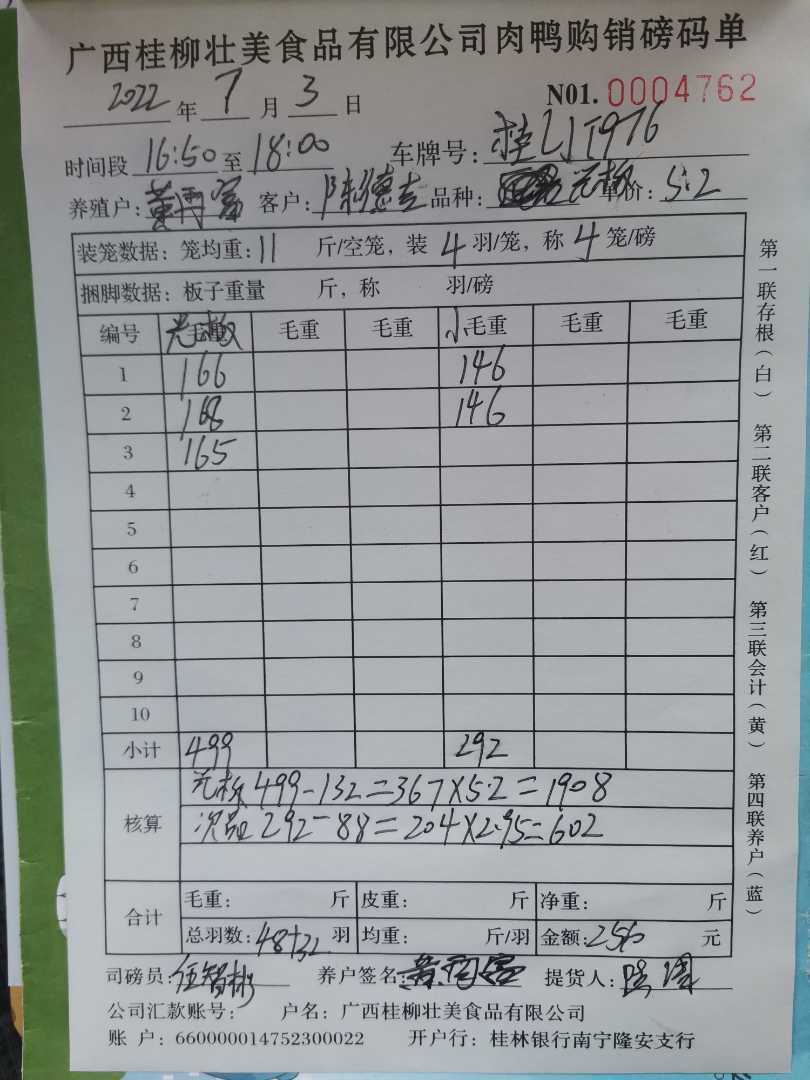 广西桂柳壮美食品有限公司肉鸭购销磅码单
2022 年 7 月 3 日 N01. 0004762
时间段 16:50 至 18:00 车牌号:桂 976
养殖户: 黄 客户: 陈德 品种: 单价: 5.2
装笼数据: 笼均重: 11 斤/空笼, 装 4 羽/笼, 称 4 笼/磅
捆脚数据: 板子重量 斤, 称 羽/磅
编号 毛重 毛重 小毛重 毛重 毛重
1 166 146
2 168 146
3 165
4
5
6
7
8
9
10
小计 499 292
核算 499-132=367×5.2=1908
次品 292-88=204×2.95=602
合计 毛重: 斤 皮重: 斤 净重: 斤
总羽数: 48+32 羽 均重: 斤/羽 金额: 2510 元
司磅员: 伍智彬 养户签名: 黄 提货人:
公司汇款账号: 户名: 广西桂柳壮美食品有限公司
账 户: 660000014752300022 开户行: 桂林银行南宁隆安支行
第一联存根(白) 第二联客户(红) 第三联会计(黄) 第四联养户(蓝)